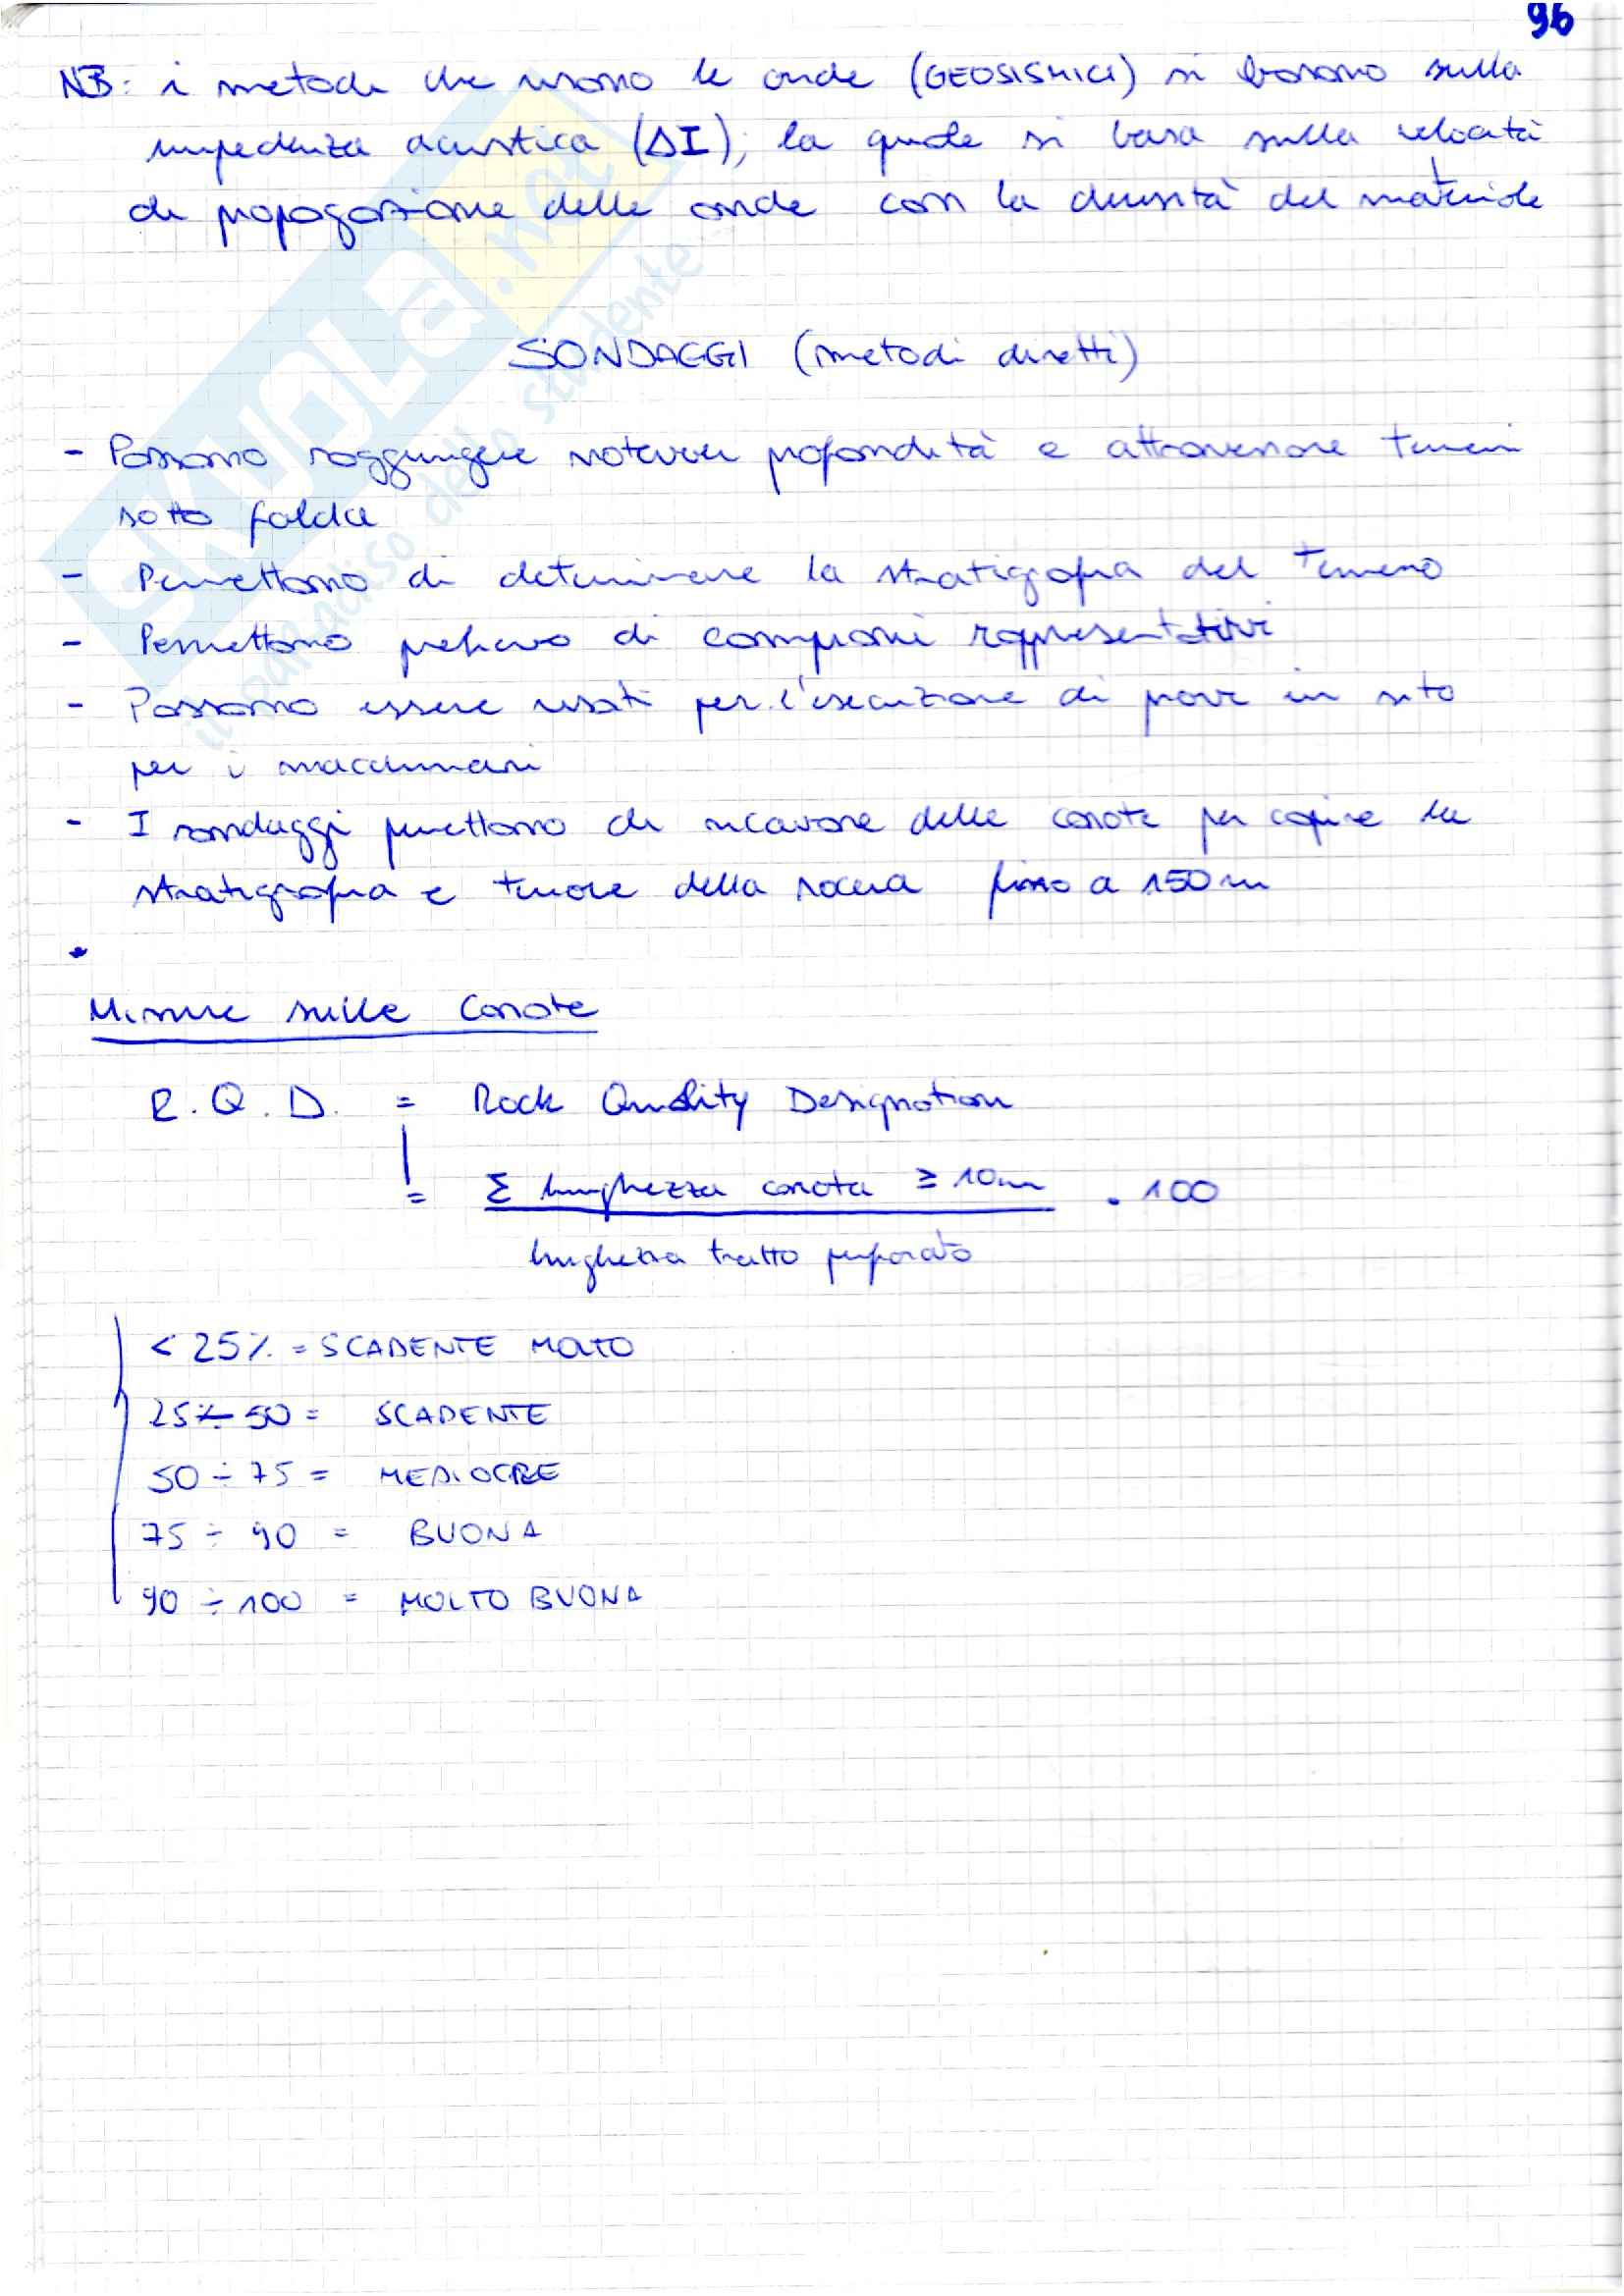 96
NB: i metodi che usano le onde (GEOSISMICI) si basano sulla
impedenza acustica (ΔI), la quale si basa sulla velocità
di propagazione delle onde con la densità del materiale
SKUOLA.net
il paradiso dello studente
SONDAGGI (metodi diretti)
- Possono raggiungere notevoli profondità e attraversare terreni
sotto falda
- Permettono di determinare la stratigrafia del terreno
- Permettono prelievo di campioni rappresentativi
- Possono essere usati per l'esecuzione di prove in sito
per i macchinari
- I sondaggi permettono di ricavare delle carote per capire la
stratigrafia e tenore della roccia fino a 150 m
Misure sulle Carote
R.Q.D. = Rock Quality Designation
= Σ lunghezza carota ≥ 10cm . 100
lunghezza tratto perforato
< 25% = SCADENTE MOLTO
25 ÷ 50 = SCADENTE
50 ÷ 75 = MEDIOCRE
75 ÷ 90 = BUONA
90 ÷ 100 = MOLTO BUONA